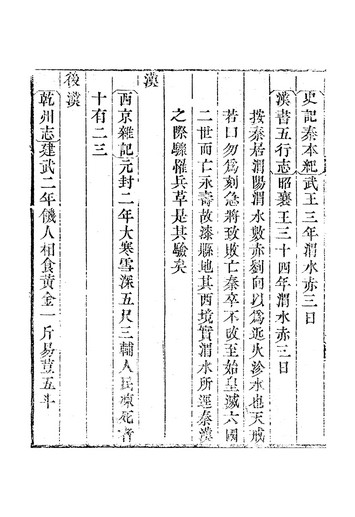 史記秦本紀武王三年渭水赤三日
漢書五行志昭襄王三十四年渭水赤三日
按秦居渭陽渭水數赤劉向以爲近火沴水也天戒
若曰勿爲刻急將致敗亡秦卒不改至始皇滅六國
二世而亡永壽故漆縣地其西境實渭水所逕秦漢
之際驟罹兵革是其驗矣
漢
西京雜記元封二年大寒雪深五尺三輔人民凍死者
十有二三
後漢
乾州志建武二年饑人相食黃金一斤易荳五斗